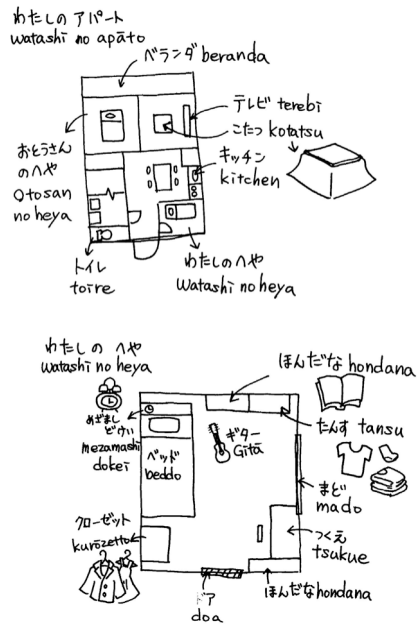 わたしの アパート
watashi no apāto
ベランダ beranda
テレビ terebi
こたつ kotatsu
おとうさん
のへや
Otosan
no heya
キッチン
kitchen
トイレ
toire
わたしのへや
watashi no heya
わたしの へや
watashi no heya
ほんだな hondana
たんす tansu
めざまし
どけい
mezamashi
dokei
ベッド
beddo
ギター
Gitā
まど
mado
クローゼット
kurōzetto
つくえ
tsukue
ドア
doa
ほんだな hondana